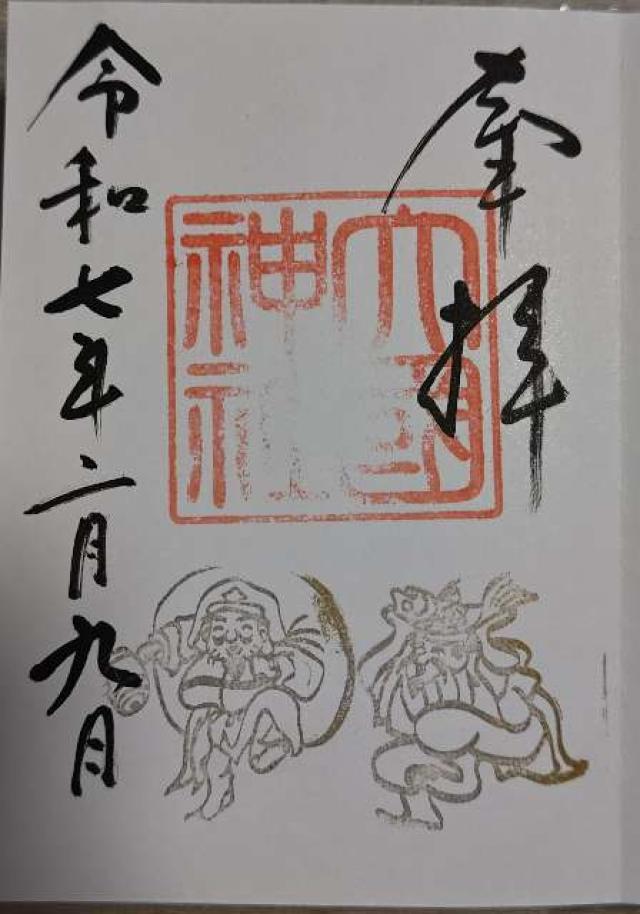 奉拝
大國
神社
令和七年二月九日